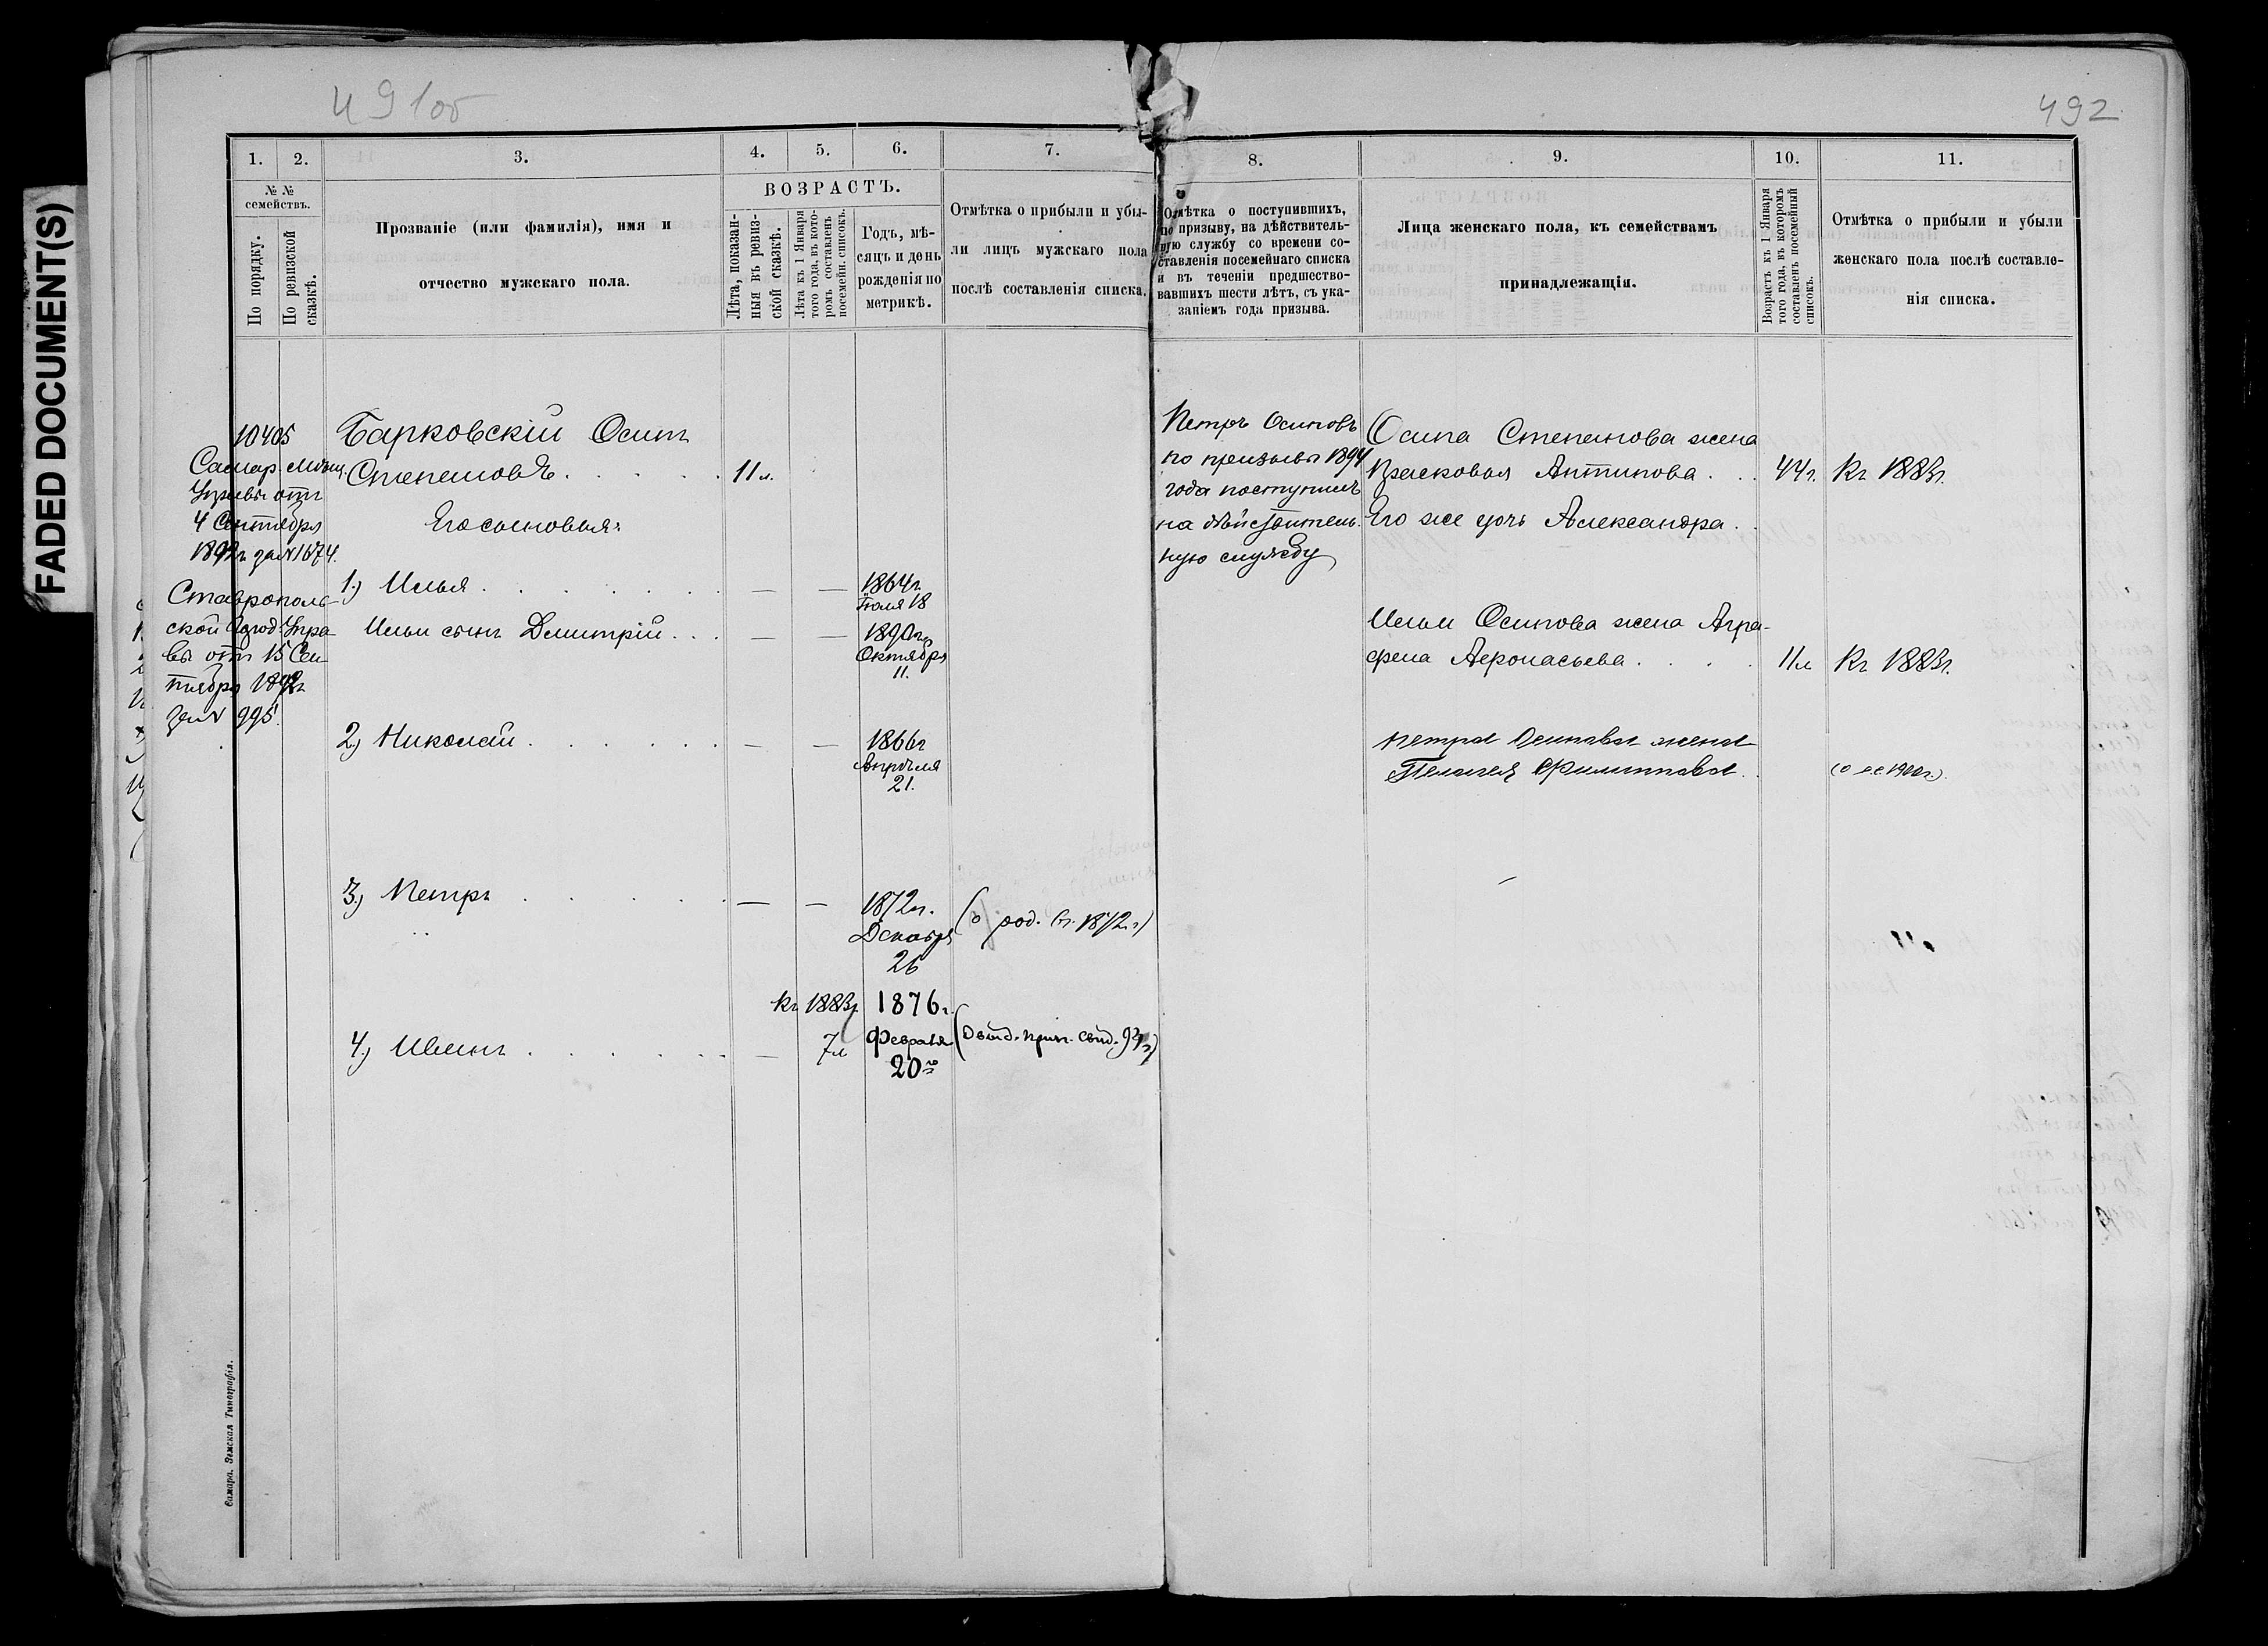 FADED DOCUMENT(S)
491об
492
1.
2.
3.
4.
5.
6.
7.
8.
9.
10.
11.
№ №
семействъ.
По порядку.
По ревизской
сказкѣ.
Прозваніе (или фамилія), имя и
отчество мужскаго пола.
ВОЗРАСТЪ.
Лѣта, показан-
ныя въ ревиз-
ской сказкѣ.
Лѣта къ 1 Января
того года, въ кото-
ромъ составленъ
посемейн. списокъ.
Годъ, мѣ-
сяцъ и день
рожденія по
метрикѣ.
Отмѣтка о прибыли и убы-
ли лицъ мужскаго пола
послѣ составленія списка.
Отмѣтка о поступившихъ,
по призыву, на дѣйствитель-
ную службу со времени со-
ставленія посемейнаго списка
и въ теченіи предшество-
вавшихъ шести лѣтъ, съ ука-
заніемъ года призыва.
Лица женскаго пола, къ семействамъ
принадлежащія.
Возрастъ къ 1 Января
того года, въ которомъ
составленъ посемейный
списокъ.
Отмѣтка о прибыли и убыли
женскаго пола послѣ составле-
нія списка.
10405
Самар. Мѣщ.
Управы отъ
4 Сентября
за № 1674.
Ставрополь-
ской Город. Упра-
вы отъ 15 Сен-
тября
за № 995.
Барковскій Осипъ
Степановъ 11 л.
Его сыновья:
1.) Илья — — 1864г.
Іюля 18
Ильи сынъ Дмитрій — — 1890г.
Октября
11.
2.) Николай — — 1866г
Апрѣля
21.
3.) Петръ — — 1872г. (о род. въ 1872г.)
Декабря
26
Къ 1883г. 1876г.
4.) Иванъ — 7л Февраля
20го
Петръ Осиповъ
по призыву 1894
года поступилъ
на дѣйствитель-
ную службу
Осипа Степанова жена
Прасковья Антипова 44г. Къ 1883г.
Его же дочь Александра
Ильи Осипова жена Агра-
фена Афонасьева 11л Къ 1883г.
Петра Осипова жена
Пелагея Филиппова
Самара. Земская Типографія.